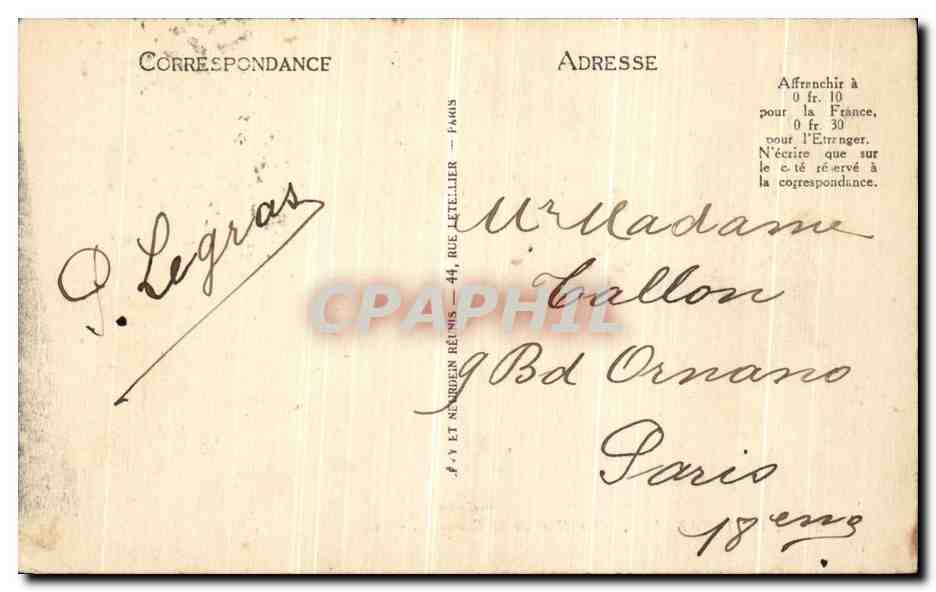 CORRESPONDANCE
ADRESSE
Affranchir à
0 fr. 10
pour la France,
0 fr 30
pour l'Etranger.
N'écrire que sur
le côté réservé à
la correspondance.
P. Legras
LÉVY ET NEURDEIN RÉUNIS — 44, RUE LETELLIER — PARIS
Mr Madame
Tallon
9 Bd Ornano
Paris
18eme
CPAPHIL